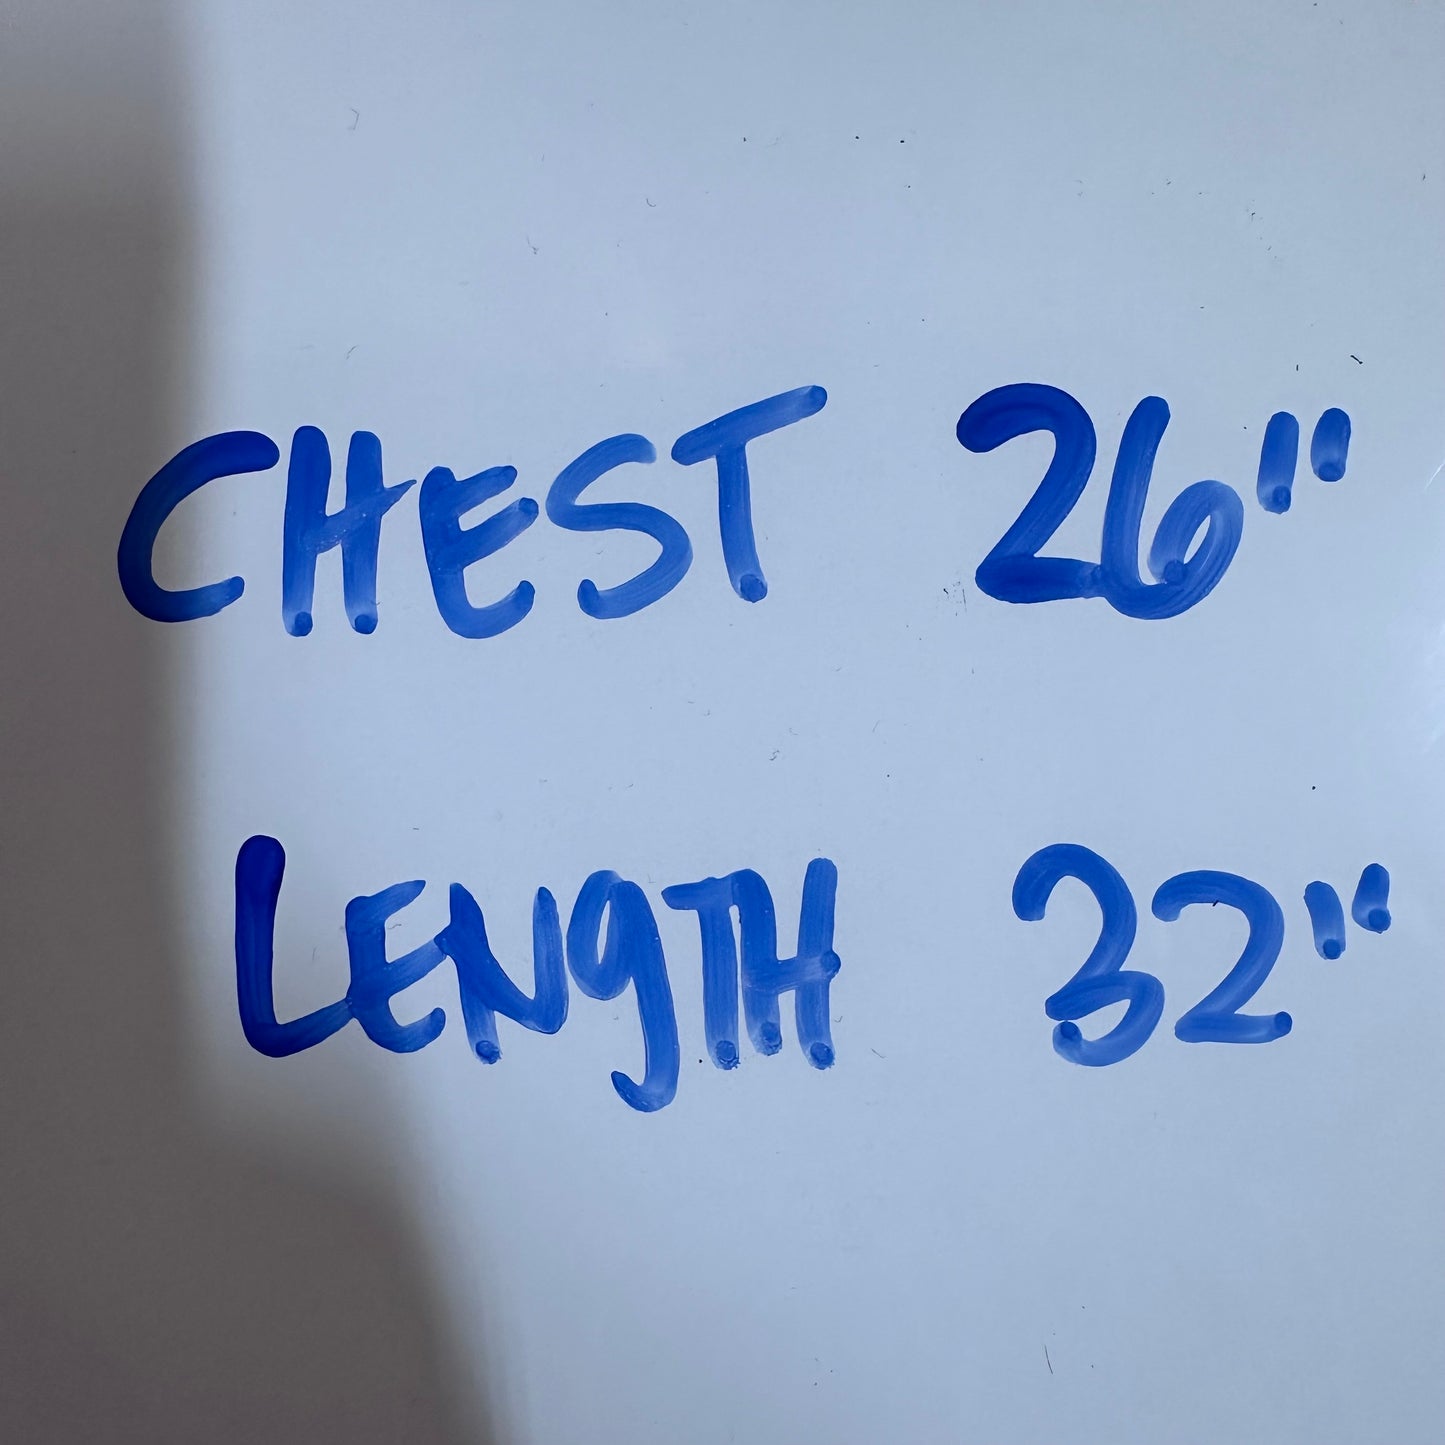 CHEST 26"
LENGTH 32"